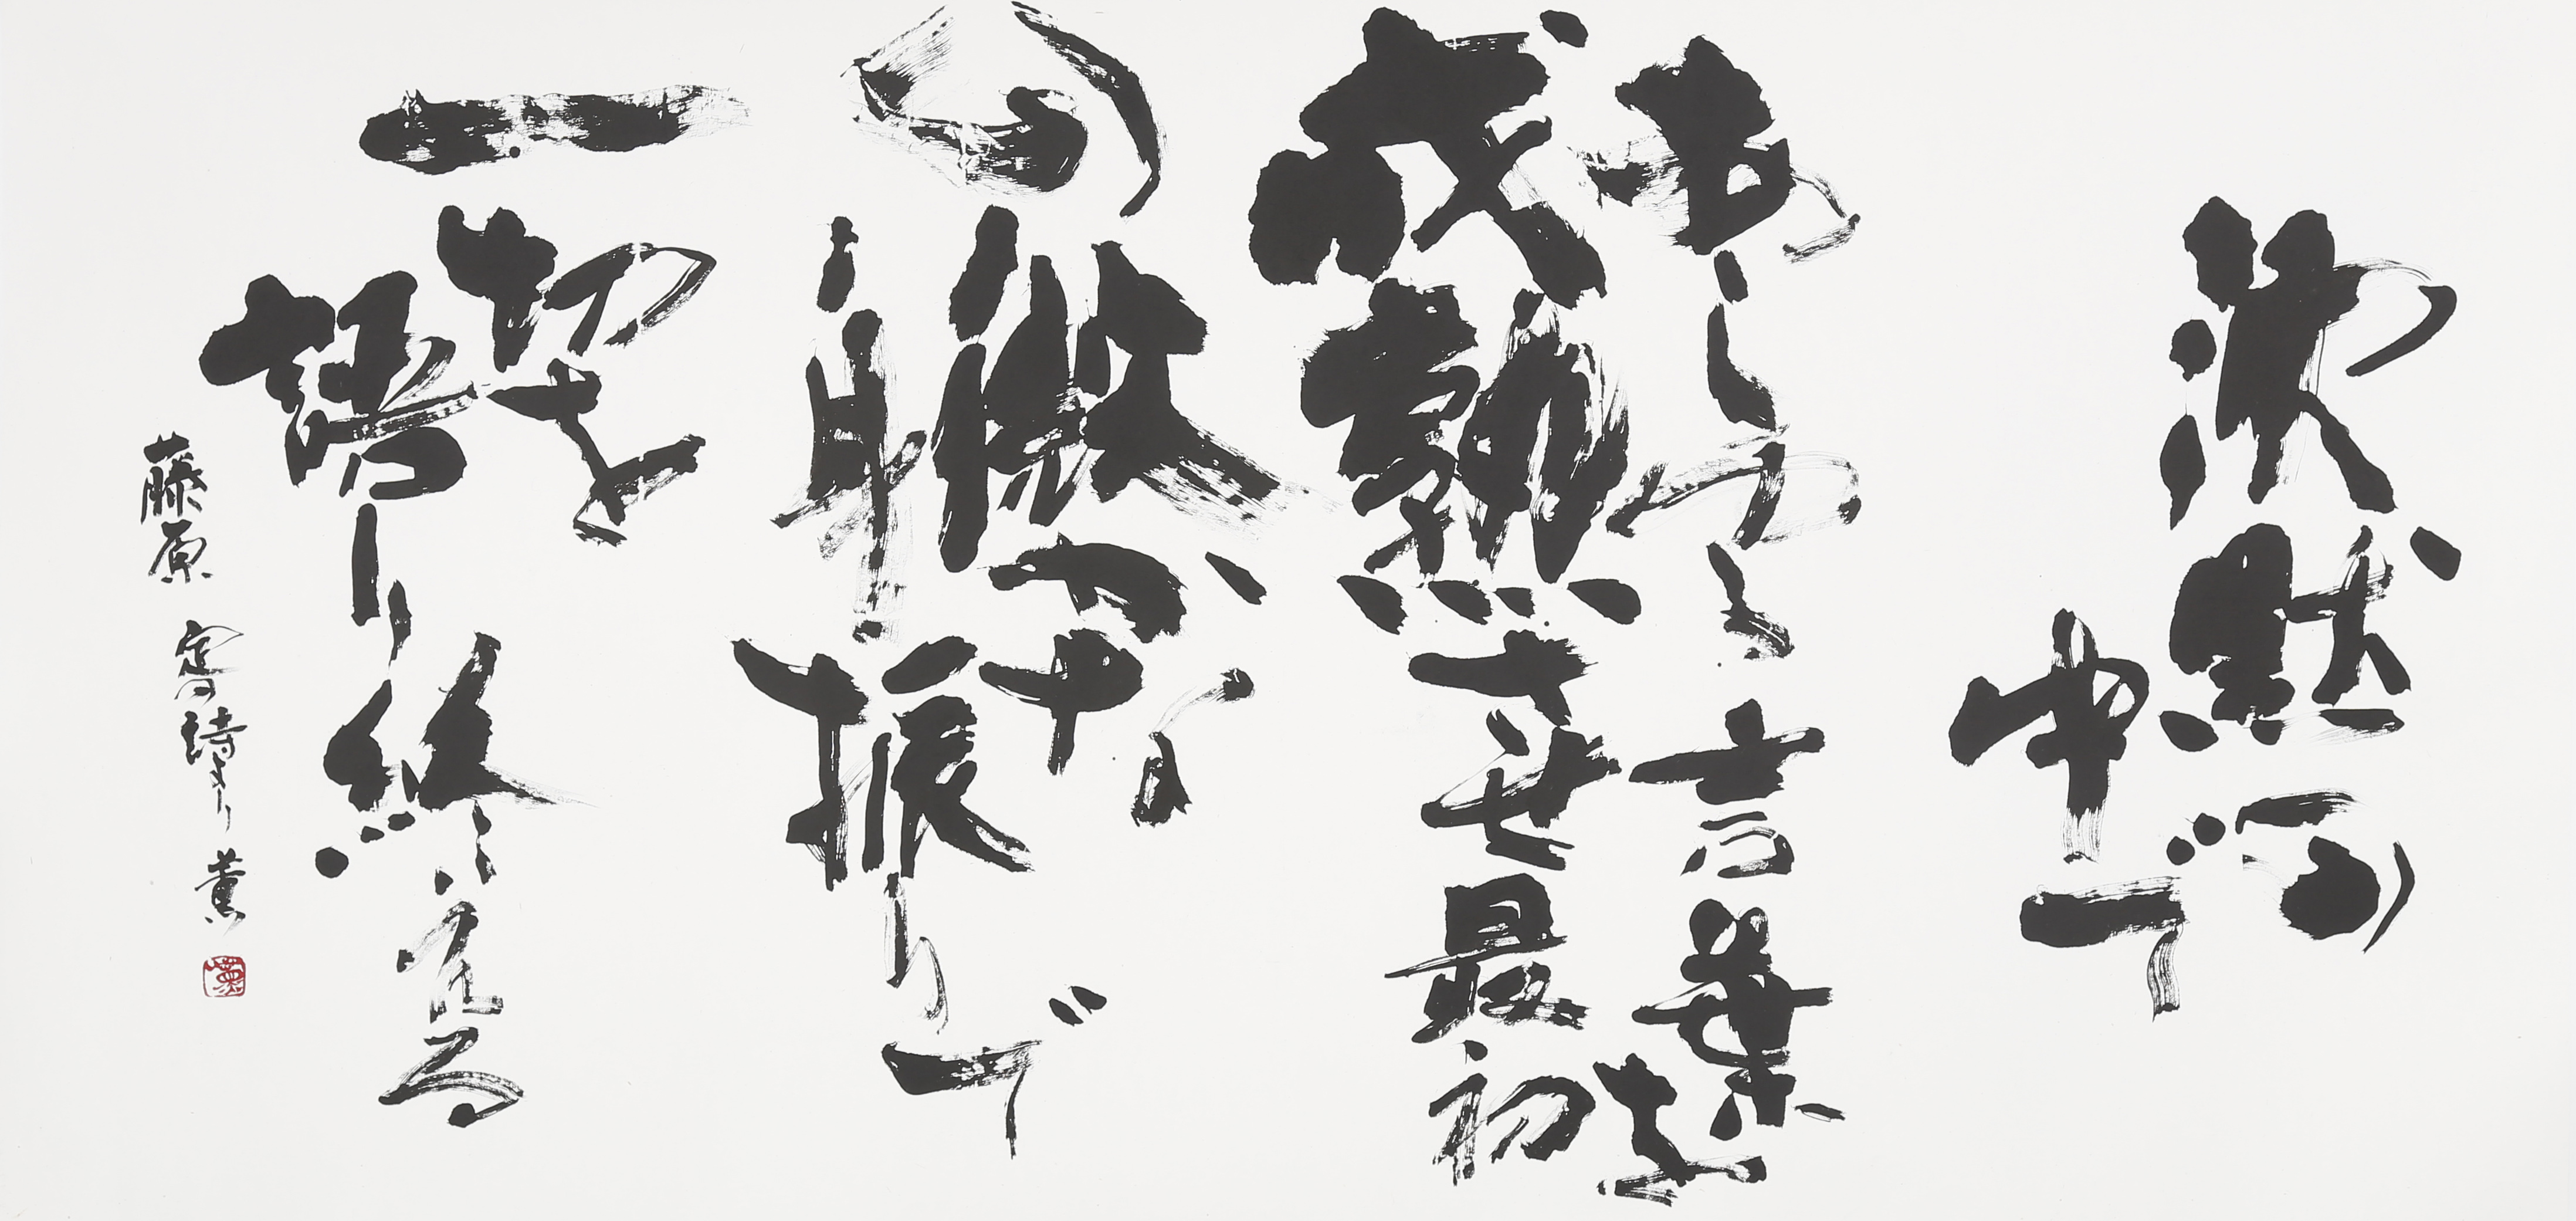 沈黙の
中で
言葉を
成熟させ最初
の微かな
身振りで
一切を
語り終える
藤原 定の詩より 薫